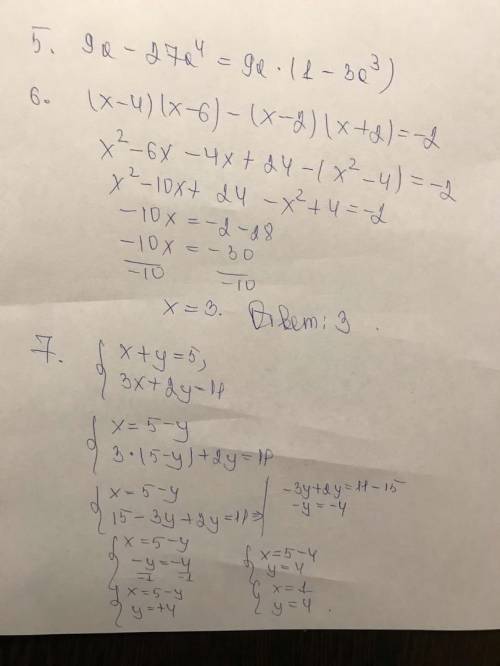 5. 9a - 27a⁴ = 9a · (1 - 3a³)
6. (x-4)(x-6) - (x-2)(x+2) = -2
x² - 6x - 4x + 24 - (x² - 4) = -2
x² - 10x + 24 - x² + 4 = -2
-10x = -2 - 28
-10x = -30
-10 -10
x = 3. Ответ: 3.
7. { x + y = 5,
3x + 2y = 11
{ x = 5 - y
3 · (5 - y) + 2y = 11
{ x = 5 - y
15 - 3y + 2y = 11 ⇒
-3y + 2y = 11 - 15
-y = -4
{ x = 5 - y
-y = -4
-1 -1
{ x = 5 - y
y = +4
{ x = 5 - 4
y = 4
{ x = 1
y = 4.